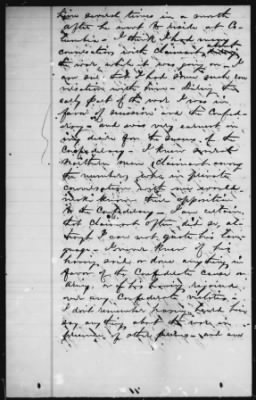 him several times in a month
after he came to reside at Co-
lumbia - I think I had many
conversations with Claimant about
the war, while it was going on - I
now say that I had such con-
versation with him - During the
early part of the war I was in
favor of secession and the Confed-
eracy - and was very earnest in
my desire for the success of the
Confederacy - I knew several
Northern men, Claimant among
the number, who in private
conversation with me would
make known their opposition
to the Confederacy - I am certain
that Claimant often did so, al-
though I can not quote his lan-
guage. I never knew of his
having said or done anything in
favor of the Confederate cause or
Army, or of his having rejoiced
over any Confederate victories -
I don't remember having heard him
say anything about the war in
presence of other people - and